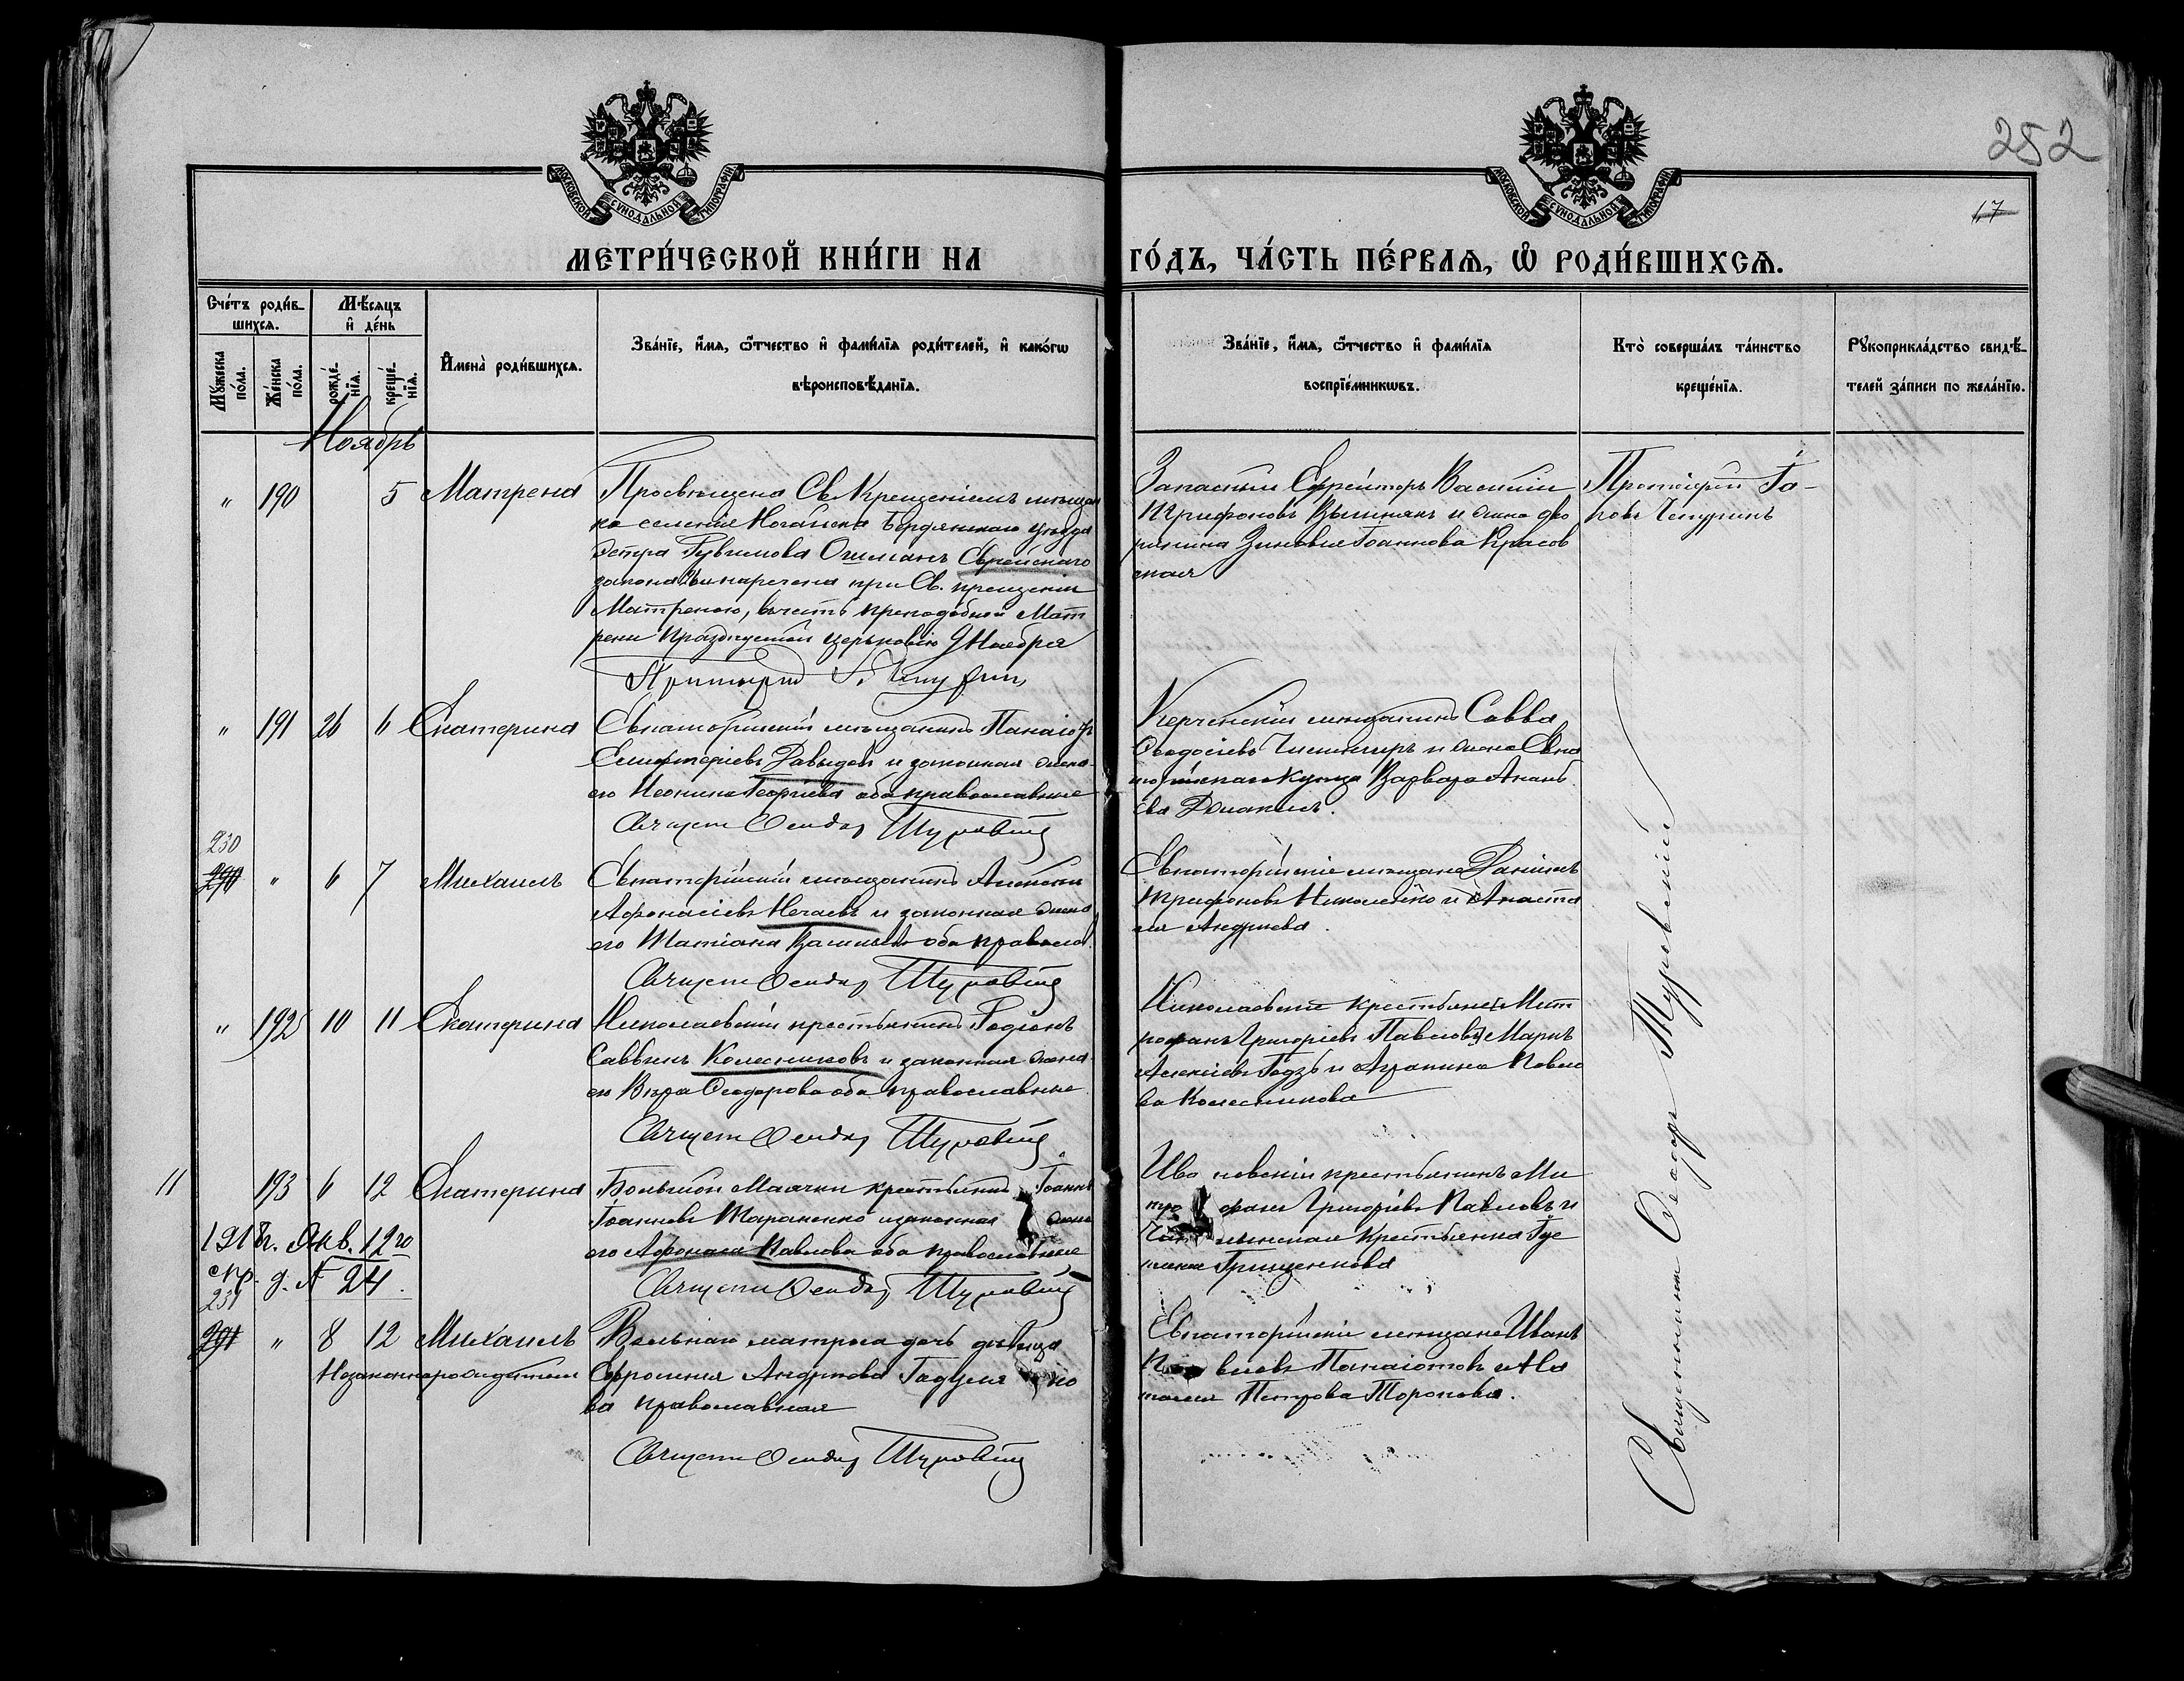 252
17
МОСКОВСКОЙ СѴНОДАЛЬНОЙ ТИПОГРАФІИ
МОСКОВСКОЙ СѴНОДАЛЬНОЙ ТИПОГРАФІИ
МЕТРИ́ЧЕСКОЙ КНИ́ГИ НА
ГО́ДЪ, ЧА́СТЬ ПЕ́РВАѦ, Ѡ҆ РОДИ́ВШИХСѦ.
Сче́тъ роди́в-
шихсѧ.
Мѣ́сѧцъ
и҆ де́нь
Мꙋ́жеска
по́ла.
Же́нска
по́ла.
рожде́-
нїѧ.
креще́-
нїѧ.
И҆мена̀ роди́вшихсѧ.
Зва́нїе, и҆́мѧ, ѻ҆́тчество и҆ фами́лїѧ роди́телей, и҆ како́гѡ
вѣроисповѣ́данїѧ.
Зва́нїе, и҆́мѧ, ѻ҆́тчество и҆ фами́лїѧ
воспрїе́мникѡвъ.
Кто̀ соверша́лъ та́инство
креще́нїѧ.
Рꙋкоприкла́дство свидѣ́-
телей за́писи по жела́нїю.
Ноябрь
" 190 5 Матрена
Просвѣщена Св. Крещеніемъ мѣщан
ка селенія Ногайска Бердянскаго уѣзда
Рувимова Еврейскаго
закона и наречена при Св. крещеніи
Матреною, въ честь преподобной Мат
рены празднуемой церковію 9 Ноября
Протоіерей
Запасный Ефрейторъ Василій
Трифоновъ и жена дво
рянина Зиновія Іоаннова Красов
ская
Протоіерей Іа-
ковъ Чепуринъ
" 191 26 6 Екатерина
Евпаторійскій мѣщанинъ Панаіотъ
Елифтеріевъ Давыдов и законная жена
его Георгіева оба православные
Священ Феодор Туровскій
Керченскій мѣщанинъ Савва
Феодосіевъ и жена Евпа
торійскаго купца Варвара Анань
ева
230
290 " 6 7 Михаилъ
Евпаторійскій мѣщанинъ Алексѣй
Афонасіевъ Нечаевъ и законная жена
его Татіана Васильева оба правосла.
Священ Феодор Туровскій
Евпаторійскіе мѣщане Даніилъ
Трифоновъ Николейко и Анаста
сія Андреева.
" 192 10 11 Екатерина
Николаевскій крестьянинъ Родіонъ
Саввинъ Колесниковъ и законная жена
его Вѣра Феодорова оба православные
Священ Феодор Туровскій
Николаевскіе крестьяне Мит
рофанъ Григоріевъ Павловъ, Маркъ
Алексіевъ и Агрипина Павло
ва Колесникова
11 193 6 12 Екатерина
Большой Маячки крестьянинъ Іоаннъ
Іоанновъ Тараненко и законная жена
его Афонасія Павлова оба православные
Священ Феодор Туровскій
1918 г. Янв. 12 го
спр. д. № 24.
крестьянинъ Ми
тро фанъ Григоріевъ Павловъ и
крестьянка
Грищенкова
231
291 " 8 12 Михаилъ
Незаконнорожденный
Вольнаго матроса дочь дѣвица
Ефросинія Андреева
ва православная
Священ Феодор Туровскій
Евпаторійскіе мѣщане Иванъ
Панаіотовъ и На
талія Петрова Торопова.
Священникъ Феодоръ Туровскій